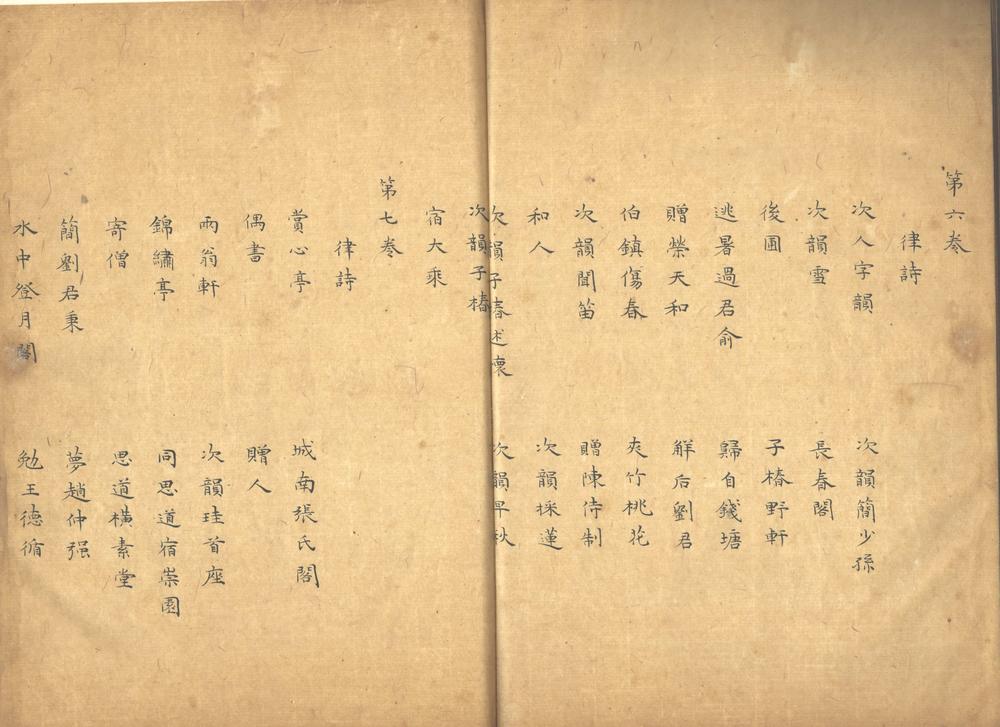 第六卷
律詩
次人字韻
次韻簡少孫
次韻雪
長春閣
後圃
子椿野軒
逃暑過君俞
歸自錢塘
贈榮天和
解后劉君
伯鎮傷春
夾竹桃花
次韻聞笛
贈陳侍制
和人
次韻採蓮
次韻子春述懷
次韻早秋
次韻子椿
宿大乘
第七卷
律詩
賞心亭
城南張氏閣
偶書
贈人
兩翁軒
次韻珪首座
錦繡亭
同思道宿崇園
寄僧
思道橫素堂
簡劉君秉
夢趙仲强
水中登月閣
勉王德循